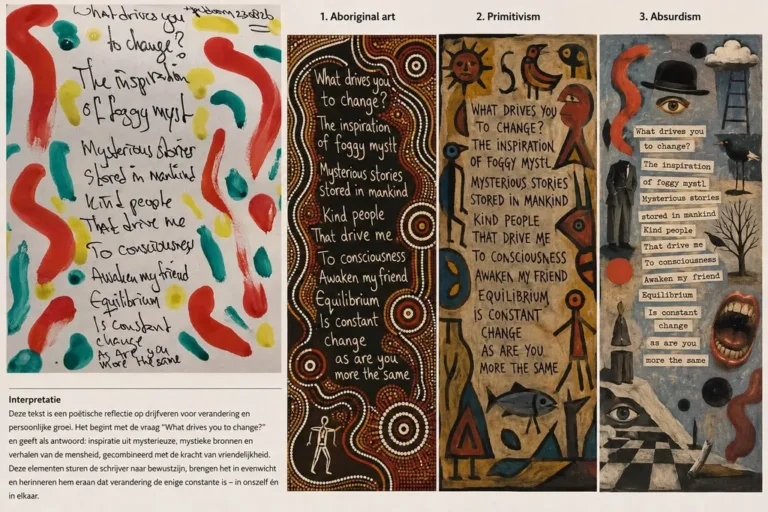 What drives you
to change?
The inspiration
of foggy myst
Mysterious stories
Stored in mankind
Kind people
That drive me
To consciousness
Awaken my friend
Equilibrium
Is constant
change
As Are you
more the same
Interpretatie
Deze tekst is een poëtische reflectie op drijfveren voor verandering en
persoonlijke groei. Het begint met de vraag "What drives you to change?"
en geeft als antwoord: inspiratie uit mysterieuze, mystieke bronnen en
verhalen van de mensheid, gecombineerd met de kracht van vriendelijkheid.
Deze elementen sturen de schrijver naar bewustzijn, brengen het in evenwicht
en herinneren hem eraan dat verandering de enige constante is – in onszelf én
in elkaar.
1. Aboriginal art
What drives you
to change?
The inspiration
of foggy mystt
Mysterious stories
stored in mankind
Kind people
That drive me
To consciousness
Awaken my friend
Equilibrium
Is constant
change
as are you
more the same
2. Primitivism
WHAT DRIVES YOU
TO CHANGE?
THE INSPIRATION
OF FOGGY MYSTL
MYSTERIOUS STORIES
STORED IN MANKIND
KIND PEOPLE
THAT DRIVE ME
TO CONSCIOUSNESS
AWAKEN MY FRIEND
EQUILIBRIUM
IS CONSTANT
CHANGE
AS ARE YOU
MORE THE SAME
3. Absurdism
What drives you
to change?
The inspiration
of foggy mystl
Mysterious stories
stored in mankind
Kind people
That drive me
To consciousness
Awaken my friend
Equilibrium
Is constant
change
as are you
more the same